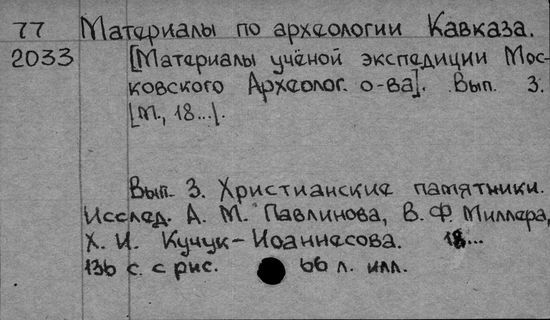 77 Материалы по археологии Кавказа.
2033 [Материалы учёной экспедиции Мос-
ковского Археолог. о-ва]. Вып. 3.
[М., 18...].
Вып. 3. Христианские памятники.
Исслед. А. М. Павлинова, В. Ф. Миллера,
Х. И. Кучук-Иоаннесова. 18...
136 с. с рис. 66 л. илл.